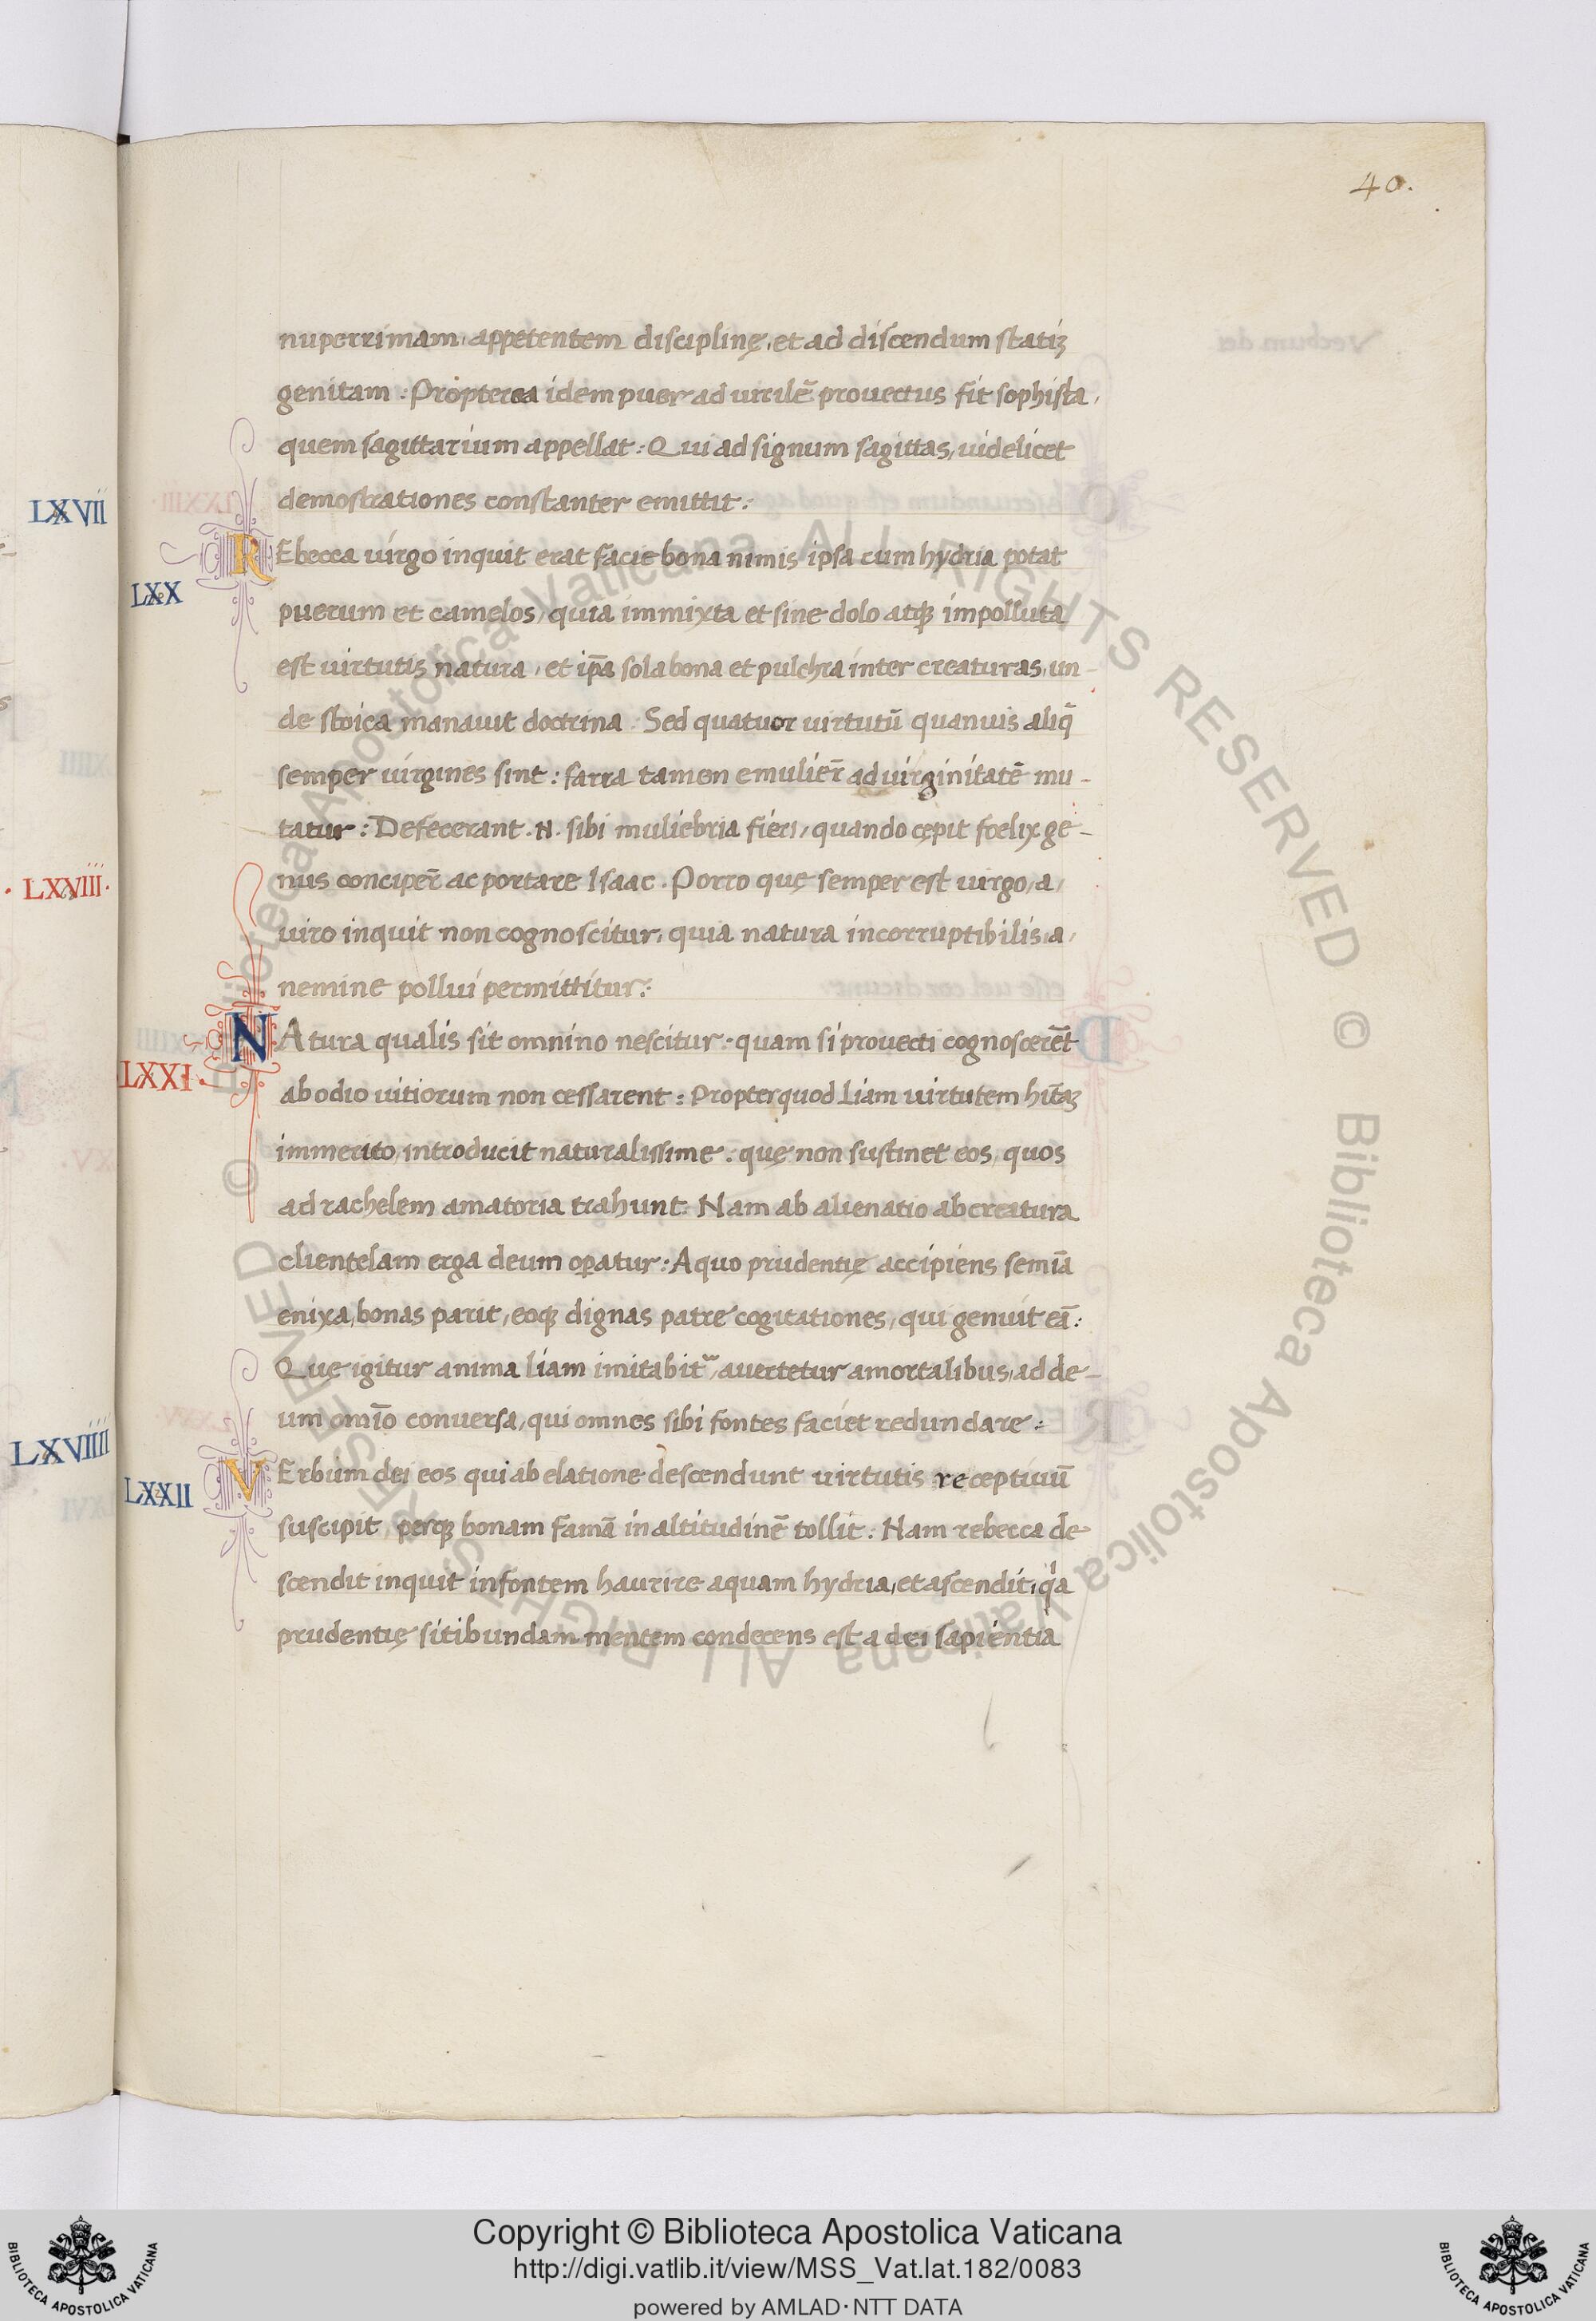 40.
nuperrimam, appetentem disciplinę, et ad discendum statiꝫ
genitam : Propterea idem puer ad virilē provectus fit sophista,
quem sagittarium appellat : Qui ad signum sagittas, videlicet
demostrationes constanter emittit :
LXVII
REbecca virgo inquit erat facie bona nimis ipsa cum hydria potat
LXX
puerum et camelos, quia immixta et sine dolo atqꝫ impolluta
est virtutis natura, et ip̄a sola bona et pulchra inter creaturas, un-
de stoica manavit doctrina. Sed quatuor virtutū quanvis aliq̄
semper virgines sint : sarra tamen e mulier̄ ad virginitatē mu-
tatur : Defecerant .N. sibi muliebria fieri, quando cępit foelix ge-
LXVIII
nus conciper̄ ac portare Isaac. Porro quę semper est virgo, a,
viro inquit non cognoscitur, quia natura incorruptibilis, a,
nemine pollui permittitur :
NAtura qualis sit omnino nescitur : quam si provecti cognoscerēt
LXXI
ab odio vitiorum non cessarent : Propterquod Liam virtutem hītaꝫ
immerito introducit naturalissime : quę non sustinet eos, quos
ad rachelem amatoria trahunt : Nam ab alienatio ab creatura
clientelam erga deum oꝑatur : A quo prudentię accipiens semīa
enixa, bonas parit, eoqꝫ dignas patre cogitationes, qui genuit eā :
Quę igitur anima liam imitabit᷑, avertetur a mortalibus, ad de-
um omīo conversa, qui omnes sibi fontes faciet redundare :
LXVIIII
VErbum dei eos qui ab elatione descendunt virtutis receptivū
LXXII
suscipit, perqꝫ bonam famā in altitudinē tollit : Nam rebecca de
scendit inquit in fontem haurire aquam hydria, et ascendit, qͥa
prudentię sitibundam mentem condecens est a dei sapientia
© Biblioteca Apostolica Vaticana ALL RIGHTS RESERVED © Biblioteca Apostolica Vaticana ALL RIGHTS RESERVED
Copyright © Biblioteca Apostolica Vaticana
http://digi.vatlib.it/view/MSS_Vat.lat.182/0083
powered by AMLAD·NTT DATA
BIBLIOTECA APOSTOLICA VATICANA
BIBLIOTECA APOSTOLICA VATICANA